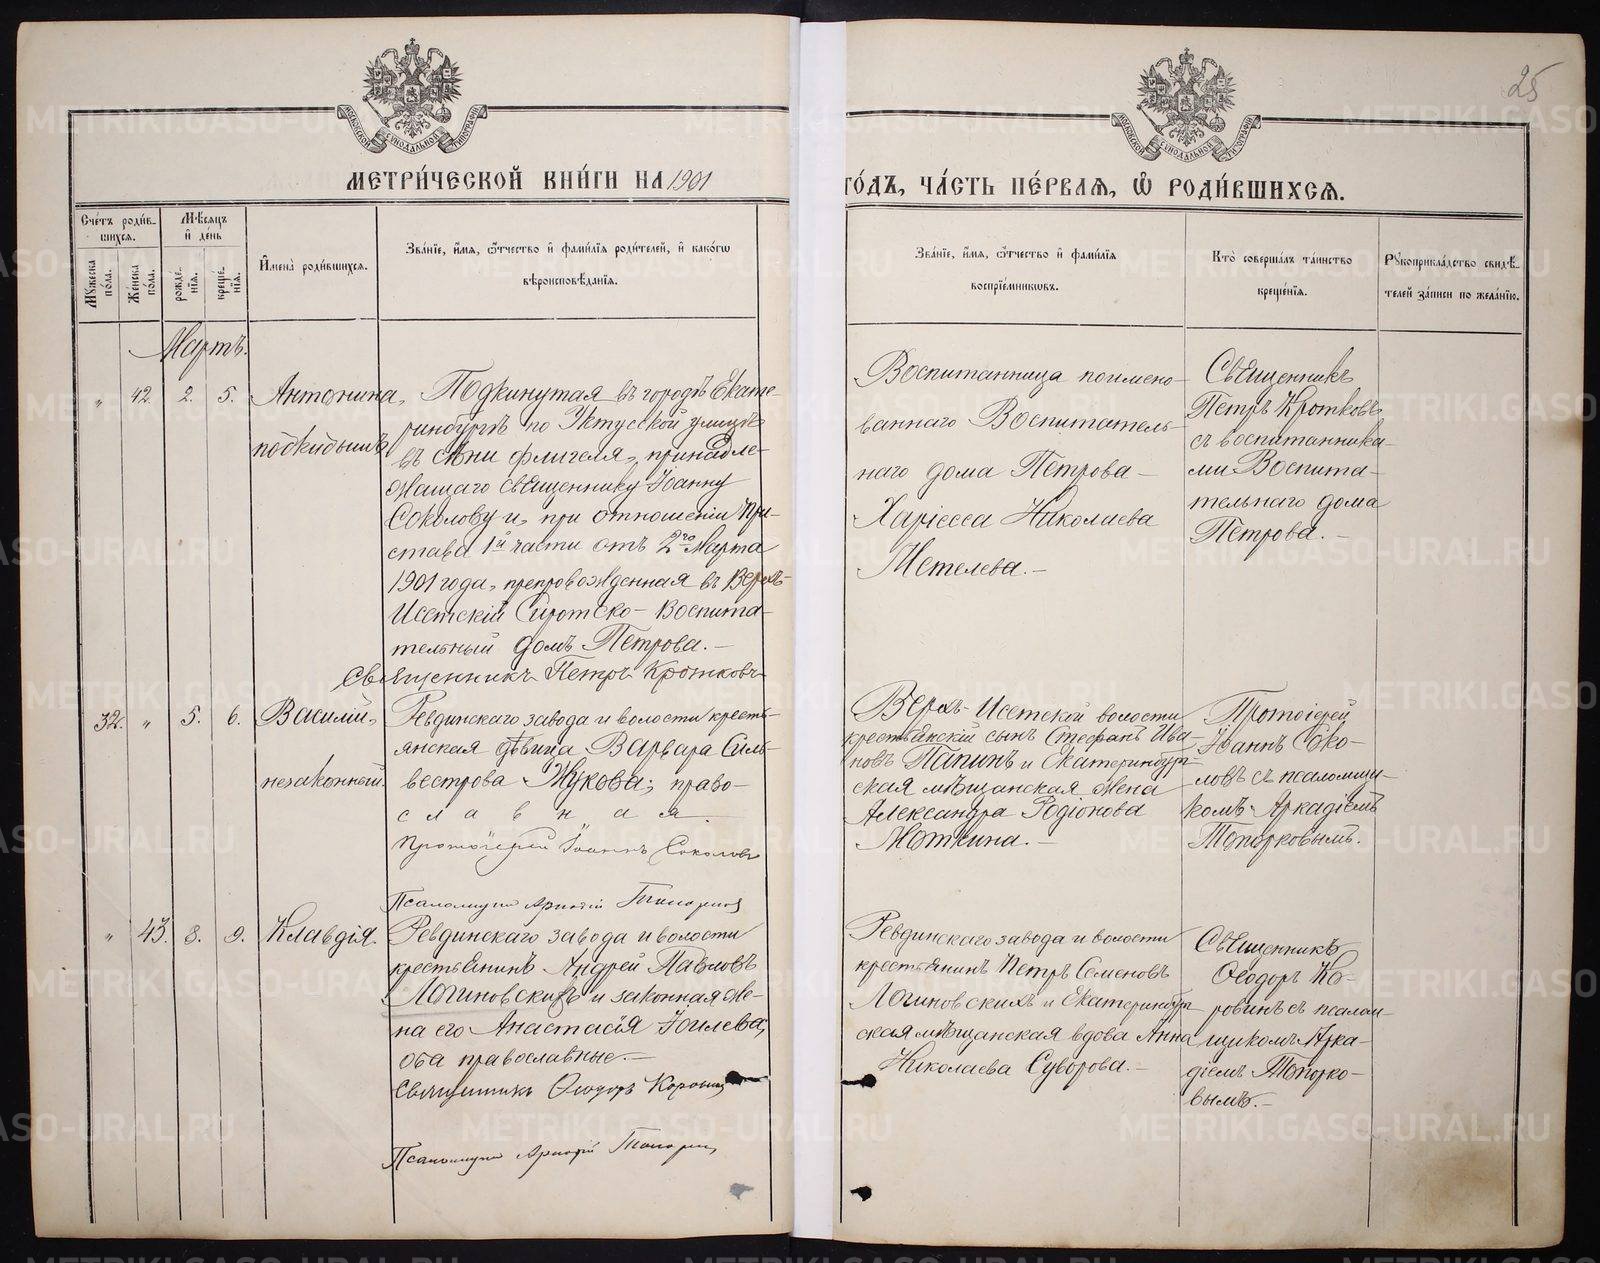 25
МОСКОВСКОЙ СѴНОДАЛЬНОЙ ТИПОГРАФІИ
МОСКОВСКОЙ СѴНОДАЛЬНОЙ ТИПОГРАФІИ
МЕТРИ́ЧЕСКОЙ КНИ́ГИ НА 1901
ГО́ДЪ, ЧА́СТЬ ПЕ́РВАѦ, Ѡ РОДИ́ВШИХСѦ.
Сче́тъ роди́в-
шихсѧ.
Мꙋжеска по́ла.
Же́нска по́ла.
Мѣ́сѧцъ
и҆ де́нь
рожде́-
нїѧ.
креще́-
нїѧ.
И҆мена̀ роди́вшихсѧ.
Зва́нїе, и҆́мѧ, ѻ҆́тчество и҆ фами́лїѧ роди́телей, и҆ како́гѡ
вѣроисповѣ́данїѧ.
Зва́нїе, и҆́мѧ, ѻ҆́тчество и҆ фами́лїѧ
воспрїе́мникѡвъ.
Кто̀ соверша́лъ та́инство
креще́нїѧ.
Рꙋкоприкла́дство свидѣ́-
телей за́писи по жела́нїю.
Мартъ.
„ 42. 2. 5. Антонина,
подкидышъ
Подкинутая въ городѣ Екате-
ринбургѣ по Уктусской улицѣ
въ сѣни флигеля, принадле-
жащаго священнику Іоанну
Соколову и, при отношеніи При-
става 1й части отъ 2го Марта
1901 года, препровожденная въ Верхъ-
Исетскій Сиротско-Воспита-
тельный домъ Петрова.-
Священникъ Петръ Кротковъ
Воспитанница поимено-
ваннаго Воспитатель-
наго дома Петрова-
Харіесса Николаева
Метелева.-
Священникъ
Петръ Кротковъ
съ воспитанника-
ми Воспита-
тельнаго дома
Петрова.-
32. „ 5. 6. Василій,
незаконный.
Ревдинскаго завода и волости кресть-
янская дѣвица Варвара Силь-
вестрова Жукова; право-
славная.
Протоіерей Іоаннъ Соколовъ
Псаломщикъ Аркадій Топорковъ
Верхъ-Исетской волости
крестьянскій сынъ Стефанъ Ива-
новъ Папинъ и Екатеринбург-
ская мѣщанская жена
Александра Родіонова
Моткина.-
Протоіерей
Іоаннъ Соко-
ловъ съ псаломщи-
комъ Аркадіемъ
Топорковымъ.
„ 43. 8. 9. Клавдія.
Ревдинскаго завода и волости
крестьянинъ Андрей Павловъ
Логиновскихъ и законная же-
на его Анастасія Іоилева;
оба православные.-
Священникъ Ѳеодоръ Коровинъ
Псаломщикъ Аркадій Топорковъ
Ревдинскаго завода и волости
крестьянинъ Петръ Семеновъ
Логиновскихъ и Екатеринбург-
ская мѣщанская вдова Анна
Николаева Суворова.-
Священникъ
Ѳеодоръ Ко-
ровинъ съ псалом-
щикомъ Арка-
діемъ Топорко-
вымъ.-
METRIKI.GASO-URAL.RU